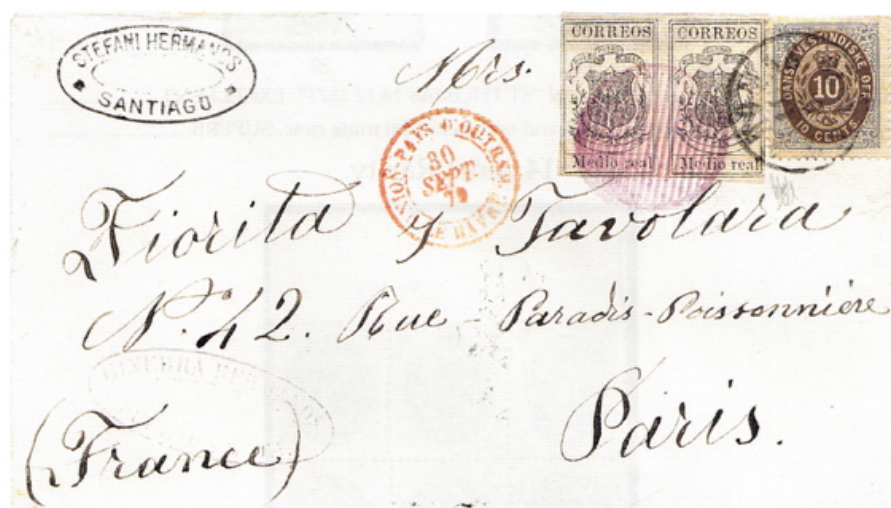 STEFANI HERMANOS
SANTIAGO
CORREOS
Medio real
CORREOS
Medio real
DANSK VESTINDISKE
10
10 CENTS
Mrs.
PAYS D'OUTREM.
30
SEPT.
79
LE HAVRE
Fiorita y Tavolara
Nº. 42. Rue - Paradis - Poissonnière
Paris.
(France)